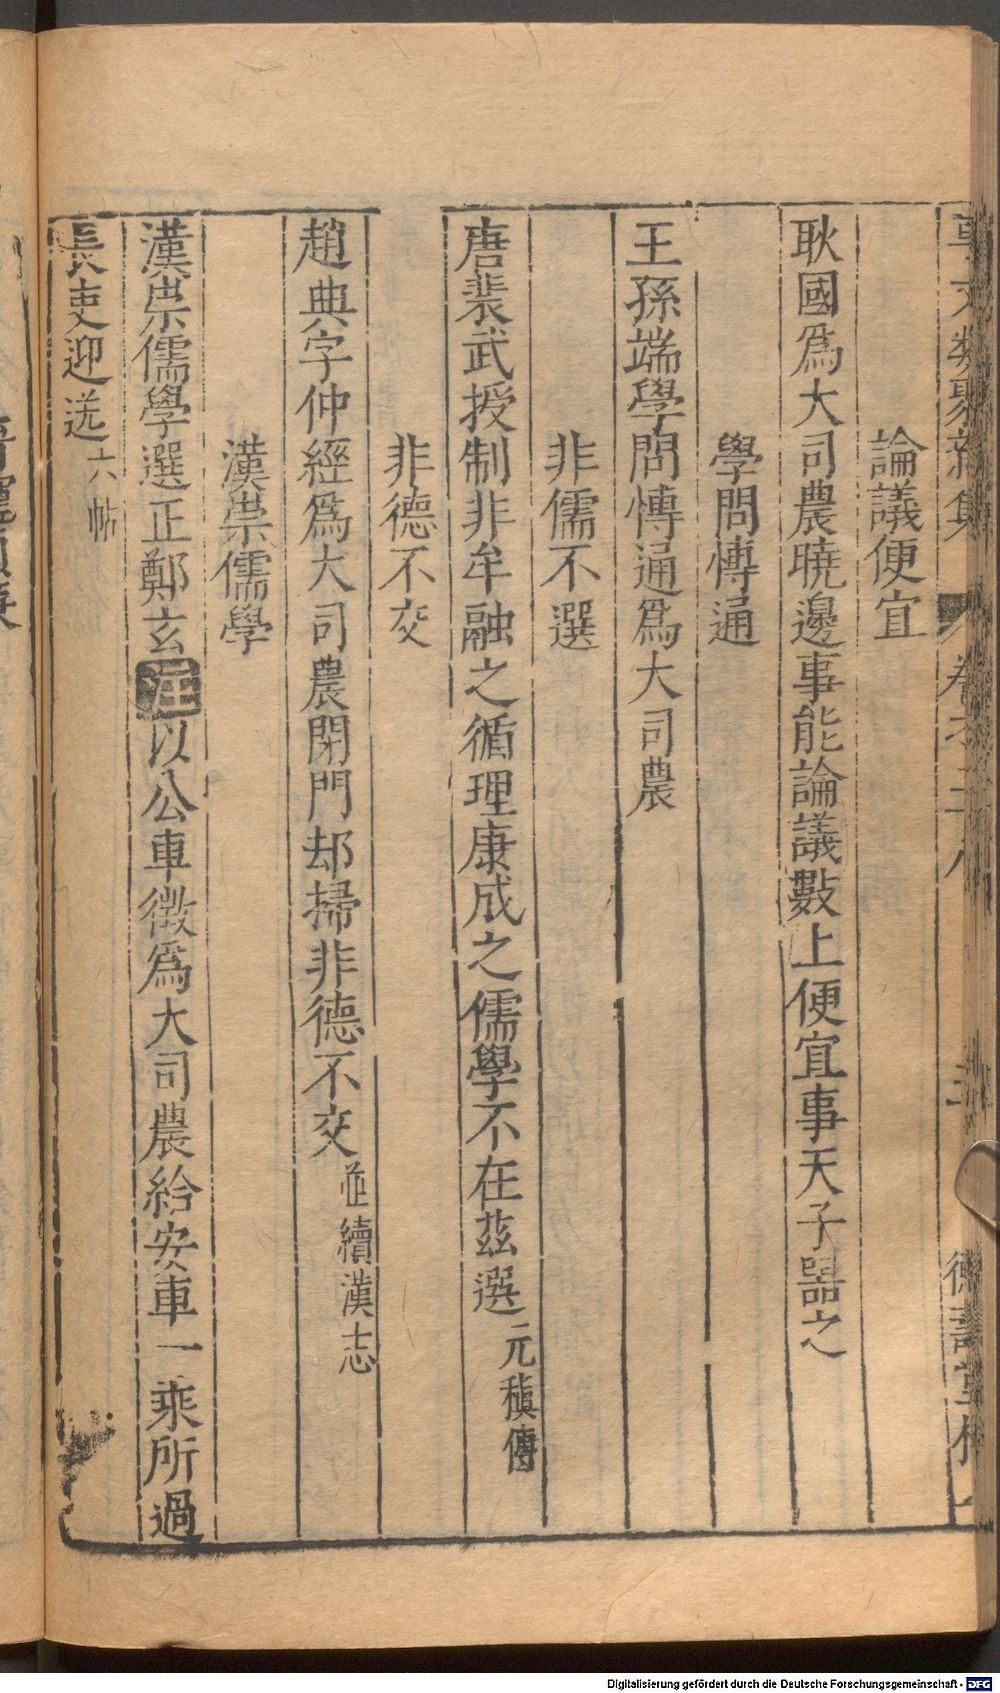 事文類聚新集 卷之二八 三 德壽堂梓
論議便宜
耿國爲大司農曉邊事能論議數上便宜事天子器之
學問博通
王孫端學問博通爲大司農
非儒不選
唐裴武授制非牟融之循理康成之儒學不在茲選元稹傳
非德不交
趙典字仲經爲大司農閉門却掃非德不交並續漢志
漢崇儒學
漢崇儒學選正鄭玄注以公車徵爲大司農給安車一乘所過
長吏迎送六帖
Digitalisierung gefördert durch die Deutsche Forschungsgemeinschaft - DFG